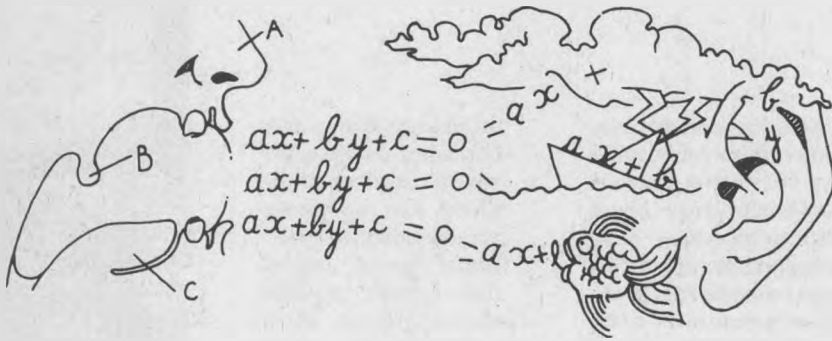 A
B
C
ax + by + c = 0 = a x +
ax + by + c = 0 =
ax + by + c = 0 = a x + b
a x + b
b
y